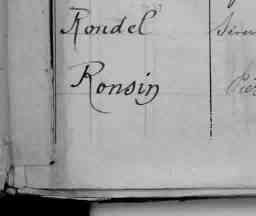 Rondel
Ronsin